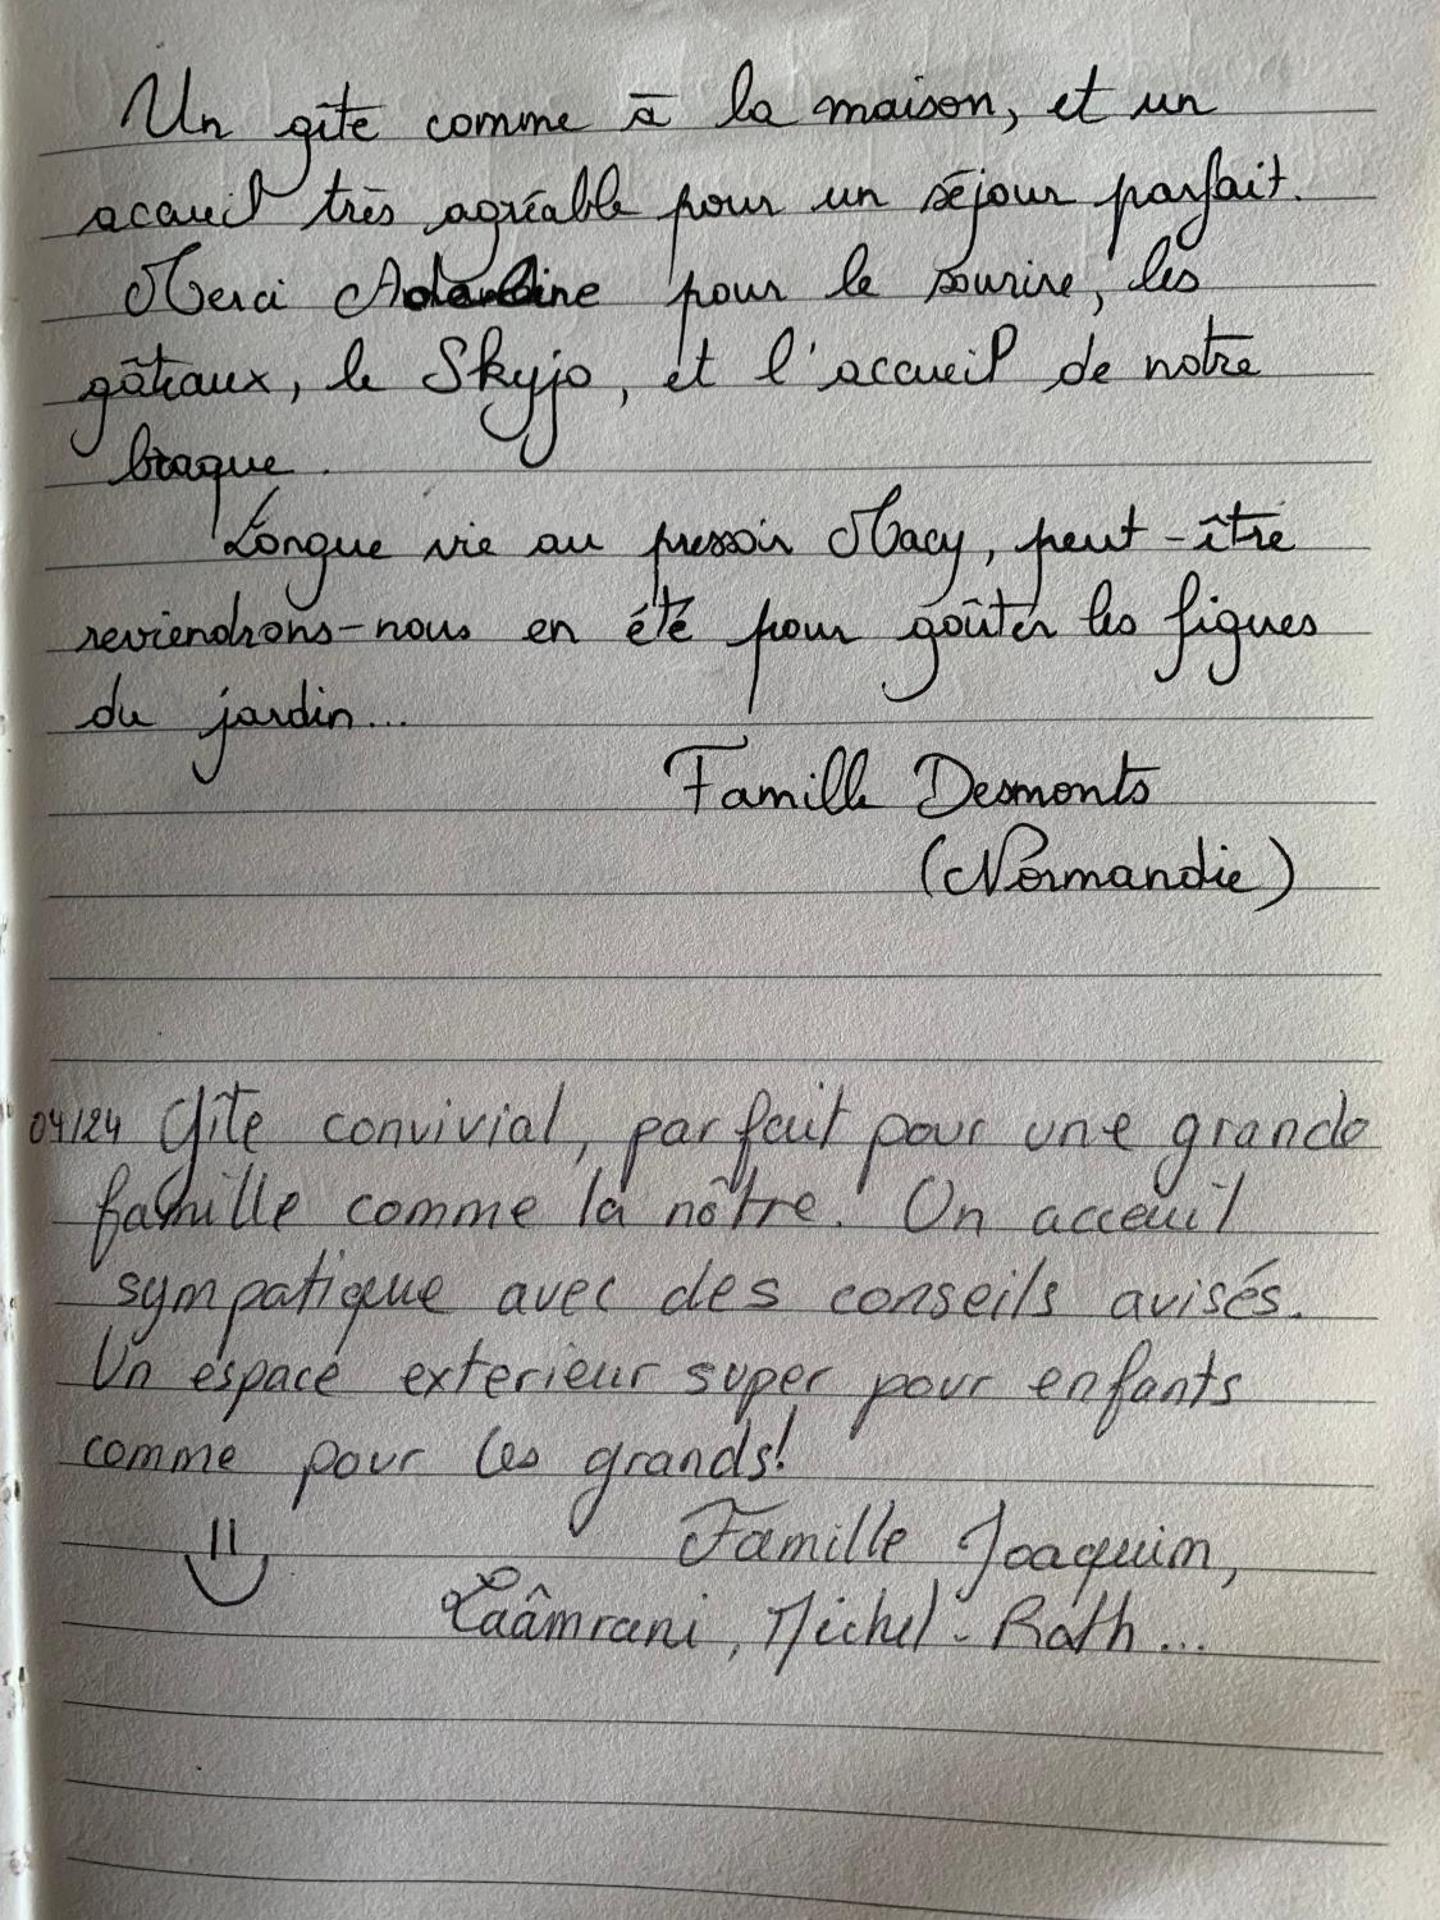 Un gîte comme à la maison, et un
accueil très agréable pour un séjour parfait.
Merci pour le sourire, les
gâteaux, le Skyjo, et l'accueil de notre
braque.
Longue vie au pressoir Macy, peut-être
reviendrons-nous en été pour goûter les figues
du jardin...
Famille Desmonts
(Normandie)
04/24 Gîte convivial, parfait pour une grande
famille comme la nôtre. Un acceuil
sympatique avec des conseils avisés.
Un espace exterieur super pour enfants
comme pour les grands!
Famille Joaquim,
Laâmrani, Michel-Rath...